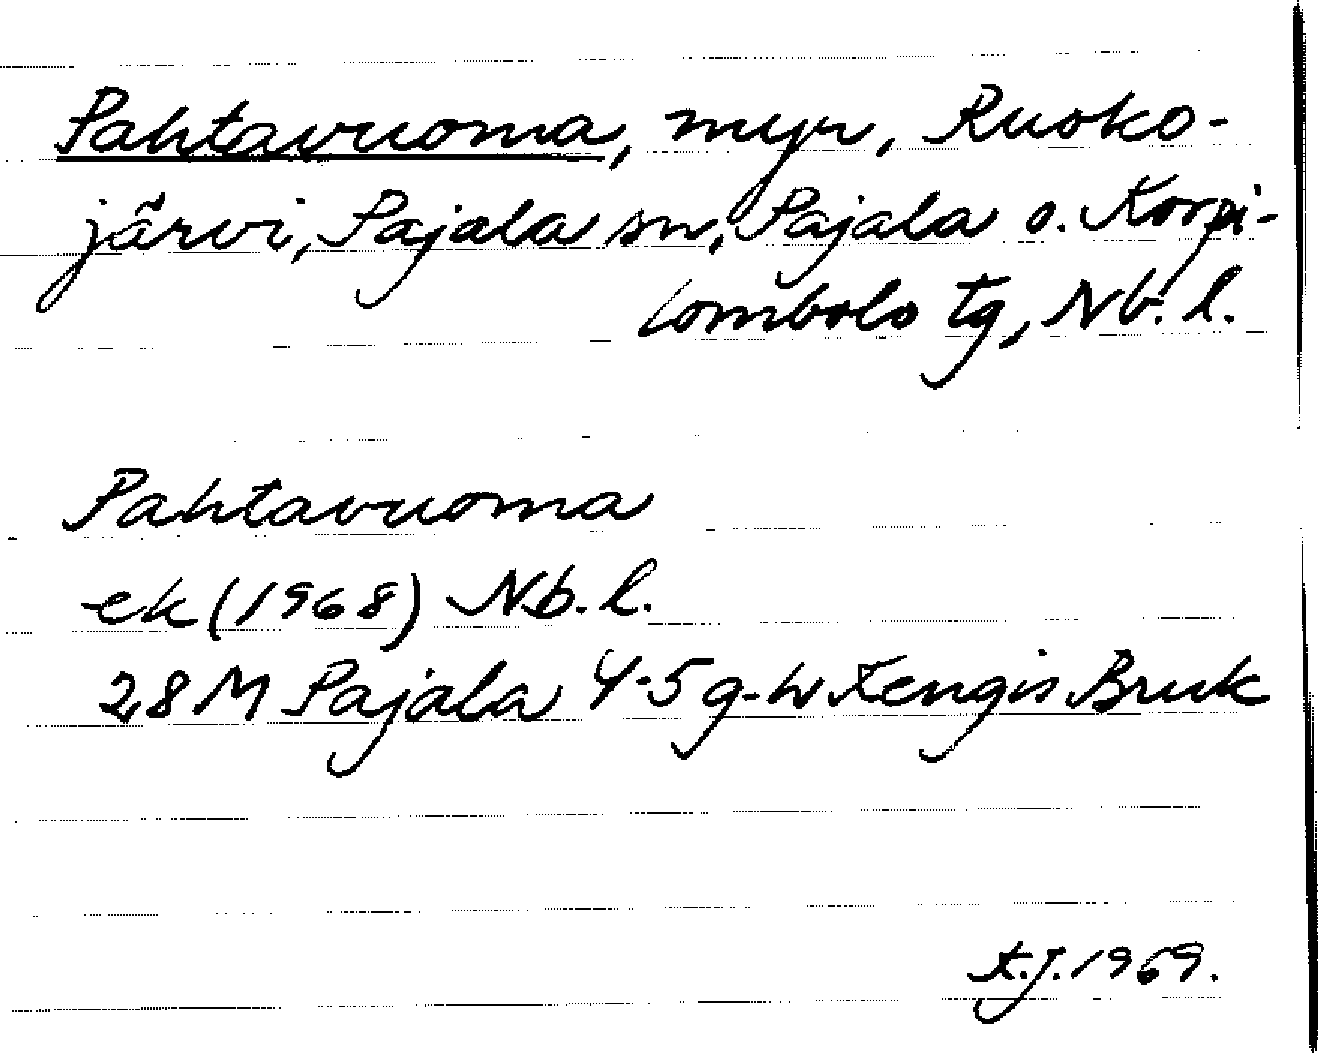 Pahtavuoma, myr, Ruoko-
järvi, Pajala sn, Pajala o. Korpi-
lombolo tg, Nb. l.
Pahtavuoma
ek (1968) Nb. l.
28 M Pajala 4-5 g-h Kengis Bruk
K.J. 1969.